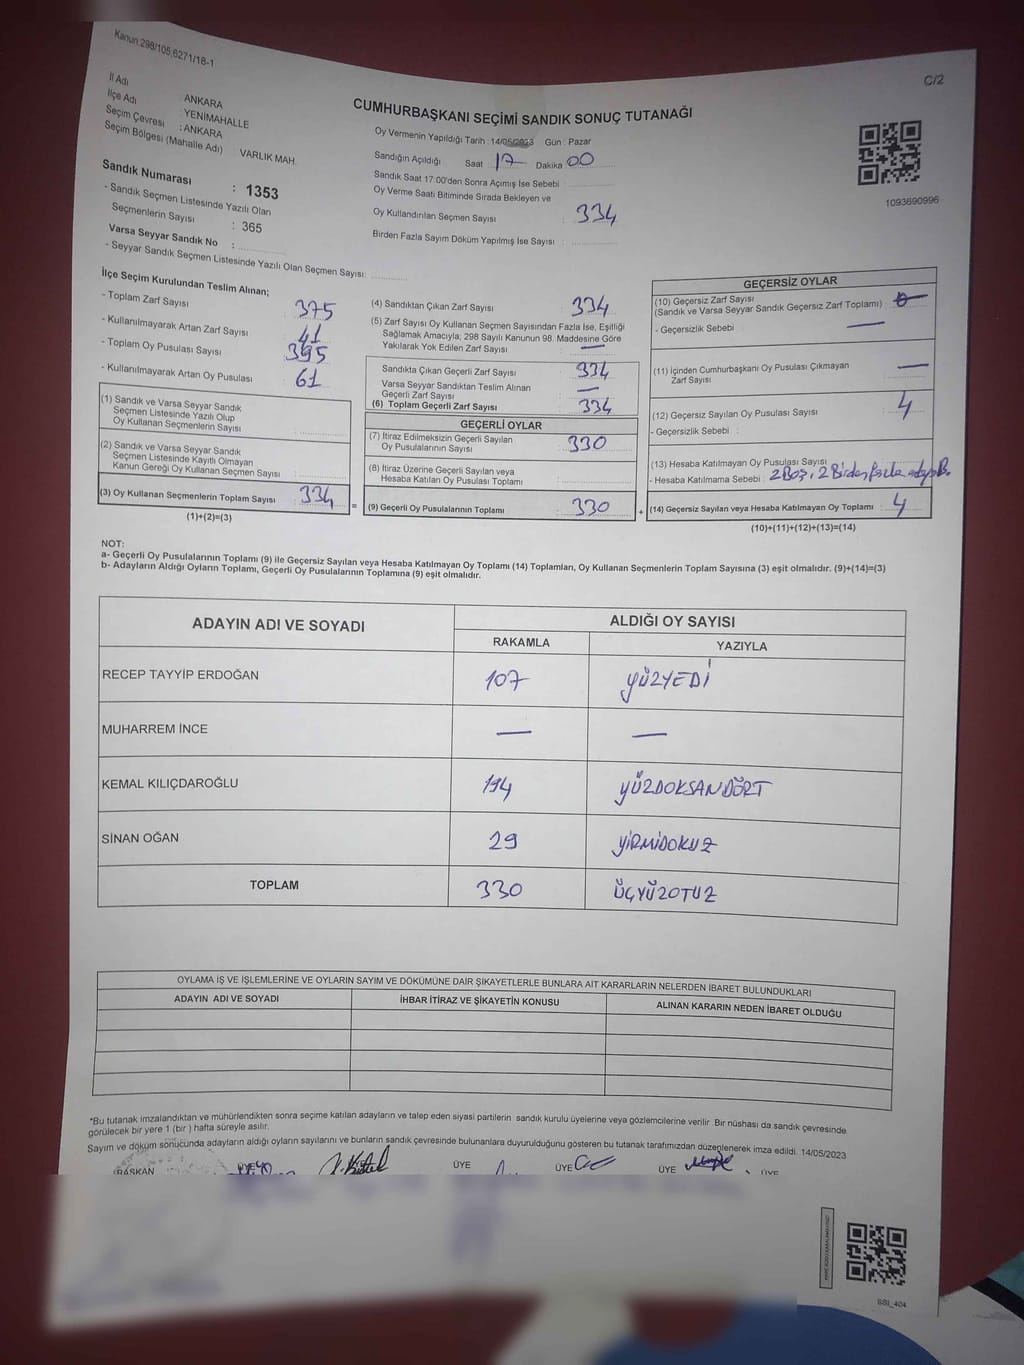 Kanun 298/105,6271/18-1
C/2
İl Adı : ANKARA
İlçe Adı : YENİMAHALLE
Seçim Çevresi : ANKARA
Seçim Bölgesi (Mahalle Adı) VARLIK MAH.
Sandık Numarası : 1353
- Sandık Seçmen Listesinde Yazılı Olan
Seçmenlerin Sayısı : 365
Varsa Seyyar Sandık No :
- Seyyar Sandık Seçmen Listesinde Yazılı Olan Seçmen Sayısı:
CUMHURBAŞKANI SEÇİMİ SANDIK SONUÇ TUTANAĞI
Oy Vermenin Yapıldığı Tarih : 14/05/2023 Gün : Pazar
Sandığın Açıldığı Saat : 17 Dakika 00
Sandık Saat 17:00'den Sonra Açımış İse Sebebi :
Oy Verme Saati Bitiminde Sırada Bekleyen ve
Oy Kullandırılan Seçmen Sayısı : 334
Birden Fazla Sayım Döküm Yapılmış İse Sayısı :
1093690996
İlçe Seçim Kurulundan Teslim Alınan;
- Toplam Zarf Sayısı 375
- Kullanılmayarak Artan Zarf Sayısı 41
- Toplam Oy Pusulası Sayısı 395
- Kullanılmayarak Artan Oy Pusulası 61
(1) Sandık ve Varsa Seyyar Sandık
Seçmen Listesinde Yazılı Olup
Oy Kullanan Seçmenlerin Sayısı :
(2) Sandık ve Varsa Seyyar Sandık
Seçmen Listesinde Kayıtlı Olmayan
Kanun Gereği Oy Kullanan Seçmen Sayısı :
(3) Oy Kullanan Seçmenlerin Toplam Sayısı : 334
(1)+(2)=(3)
(4) Sandıktan Çıkan Zarf Sayısı : 334
(5) Zarf Sayısı Oy Kullanan Seçmen Sayısından Fazla İse, Eşitliği
Sağlamak Amacıyla, 298 Sayılı Kanunun 98. Maddesine Göre
Yakılarak Yok Edilen Zarf Sayısı : —
Sandıkta Çıkan Geçerli Zarf Sayısı : 334
Varsa Seyyar Sandıktan Teslim Alınan
Geçerli Zarf Sayısı : —
(6) Toplam Geçerli Zarf Sayısı : 334
GEÇERLİ OYLAR
(7) İtiraz Edilmeksizin Geçerli Sayılan
Oy Pusulalarının Sayısı : 330
(8) İtiraz Üzerine Geçerli Sayılan veya
Hesaba Katılan Oy Pusulası Toplamı :
(9) Geçerli Oy Pusulalarının Toplamı : 330
=
+
GEÇERSİZ OYLAR
(10) Geçersiz Zarf Sayısı
(Sandık ve Varsa Seyyar Sandık Geçersiz Zarf Toplamı) :
- Geçersizlik Sebebi : —
(11) İçinden Cumhurbaşkanı Oy Pusulası Çıkmayan
Zarf Sayısı : —
(12) Geçersiz Sayılan Oy Pusulası Sayısı : 4
- Geçersizlik Sebebi :
(13) Hesaba Katılmayan Oy Pusulası Sayısı
- Hesaba Katılmama Sebebi : 2 Boş, 2 Birden fazla
(14) Geçersiz Sayılan veya Hesaba Katılmayan Oy Toplamı : 4
(10)+(11)+(12)+(13)=(14)
NOT:
a- Geçerli Oy Pusulalarının Toplamı (9) ile Geçersiz Sayılan veya Hesaba Katılmayan Oy Toplamı (14) Toplamları, Oy Kullanan Seçmenlerin Toplam Sayısına (3) eşit olmalıdır. (9)+(14)=(3)
b- Adayların Aldığı Oyların Toplamı, Geçerli Oy Pusulalarının Toplamına (9) eşit olmalıdır.
ADAYIN ADI VE SOYADI
ALDIĞI OY SAYISI
RAKAMLA YAZIYLA
RECEP TAYYİP ERDOĞAN 107 YÜZYEDİ
MUHARREM İNCE — —
KEMAL KILIÇDAROĞLU 194 YÜZDOKSANDÖRT
SİNAN OĞAN 29 YİRMİDOKUZ
TOPLAM 330 ÜÇYÜZOTUZ
OYLAMA İŞ VE İŞLEMLERİNE VE OYLARIN SAYIM VE DÖKÜMÜNE DAİR ŞİKAYETLERLE BUNLARA AİT KARARLARIN NELERDEN İBARET BULUNDUKLARI
ADAYIN ADI VE SOYADI İHBAR İTİRAZ VE ŞİKAYETİN KONUSU ALINAN KARARIN NEDEN İBARET OLDUĞU
*Bu tutanak imzalandıktan ve mühürlendikten sonra seçime katılan adayların ve talep eden siyasi partilerin sandık kurulu üyelerine veya gözlemcilerine verilir. Bir nüshası da sandık çevresinde
görülecek bir yere 1 (bir ) hafta süreyle asılır.
Sayım ve döküm sonucunda adayların aldığı oyların sayılarını ve bunların sandık çevresinde bulunanlara duyurulduğunu gösteren bu tutanak tarafımızdan düzenlenerek imza edildi. 14/05/2023
BAŞKAN ÜYE ÜYE ÜYE ÜYE ÜYE
SSİ_404